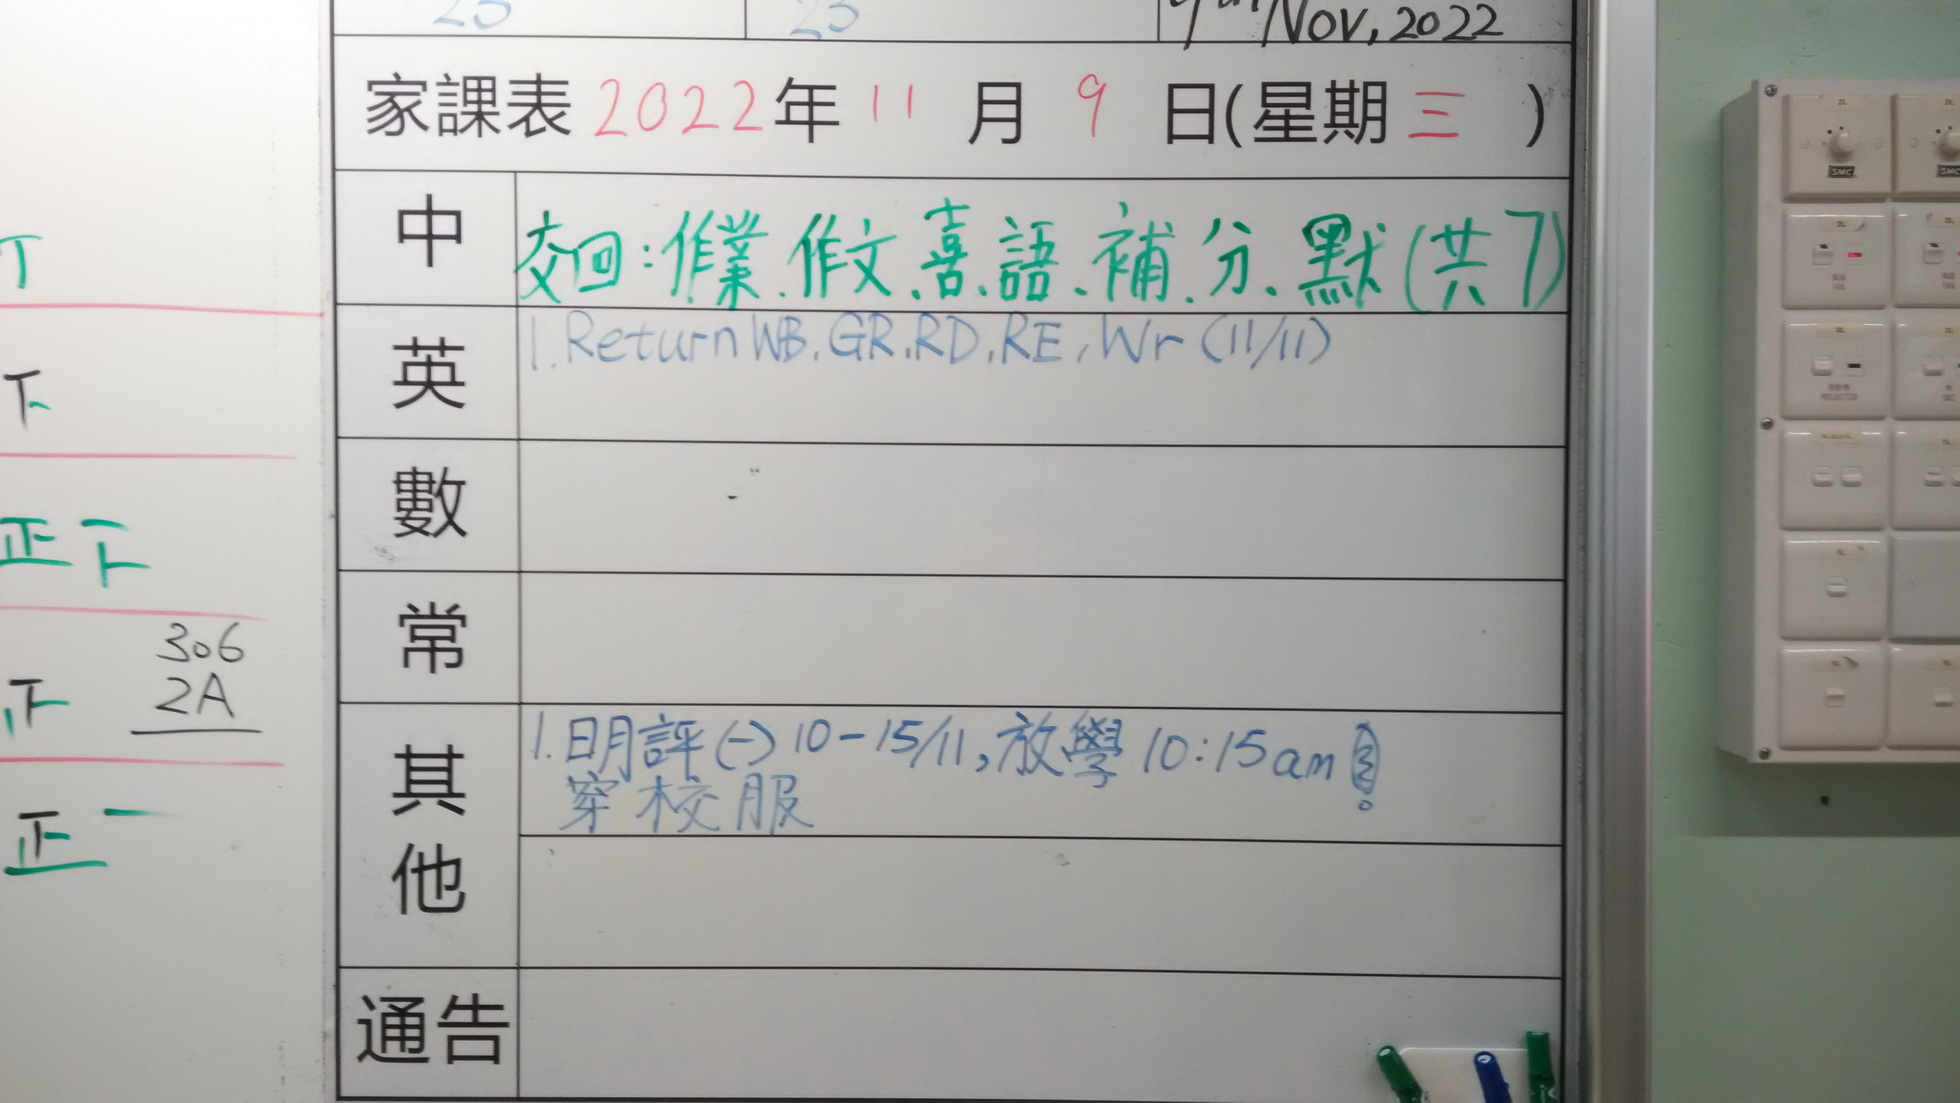 23 23 9th Nov, 2022
家課表 2022年 11 月 9 日(星期 三 )
中 交回:作業、作文、喜、語、補、分、默(共7)
英 1. Return WB, GR, RD, RE, Wr (11/11)
數
常
306
2A
其他 1. 明評(一) 10-15/11, 放學 10:15am!
穿校服
通告
SMC
SMC
PROJECTOR